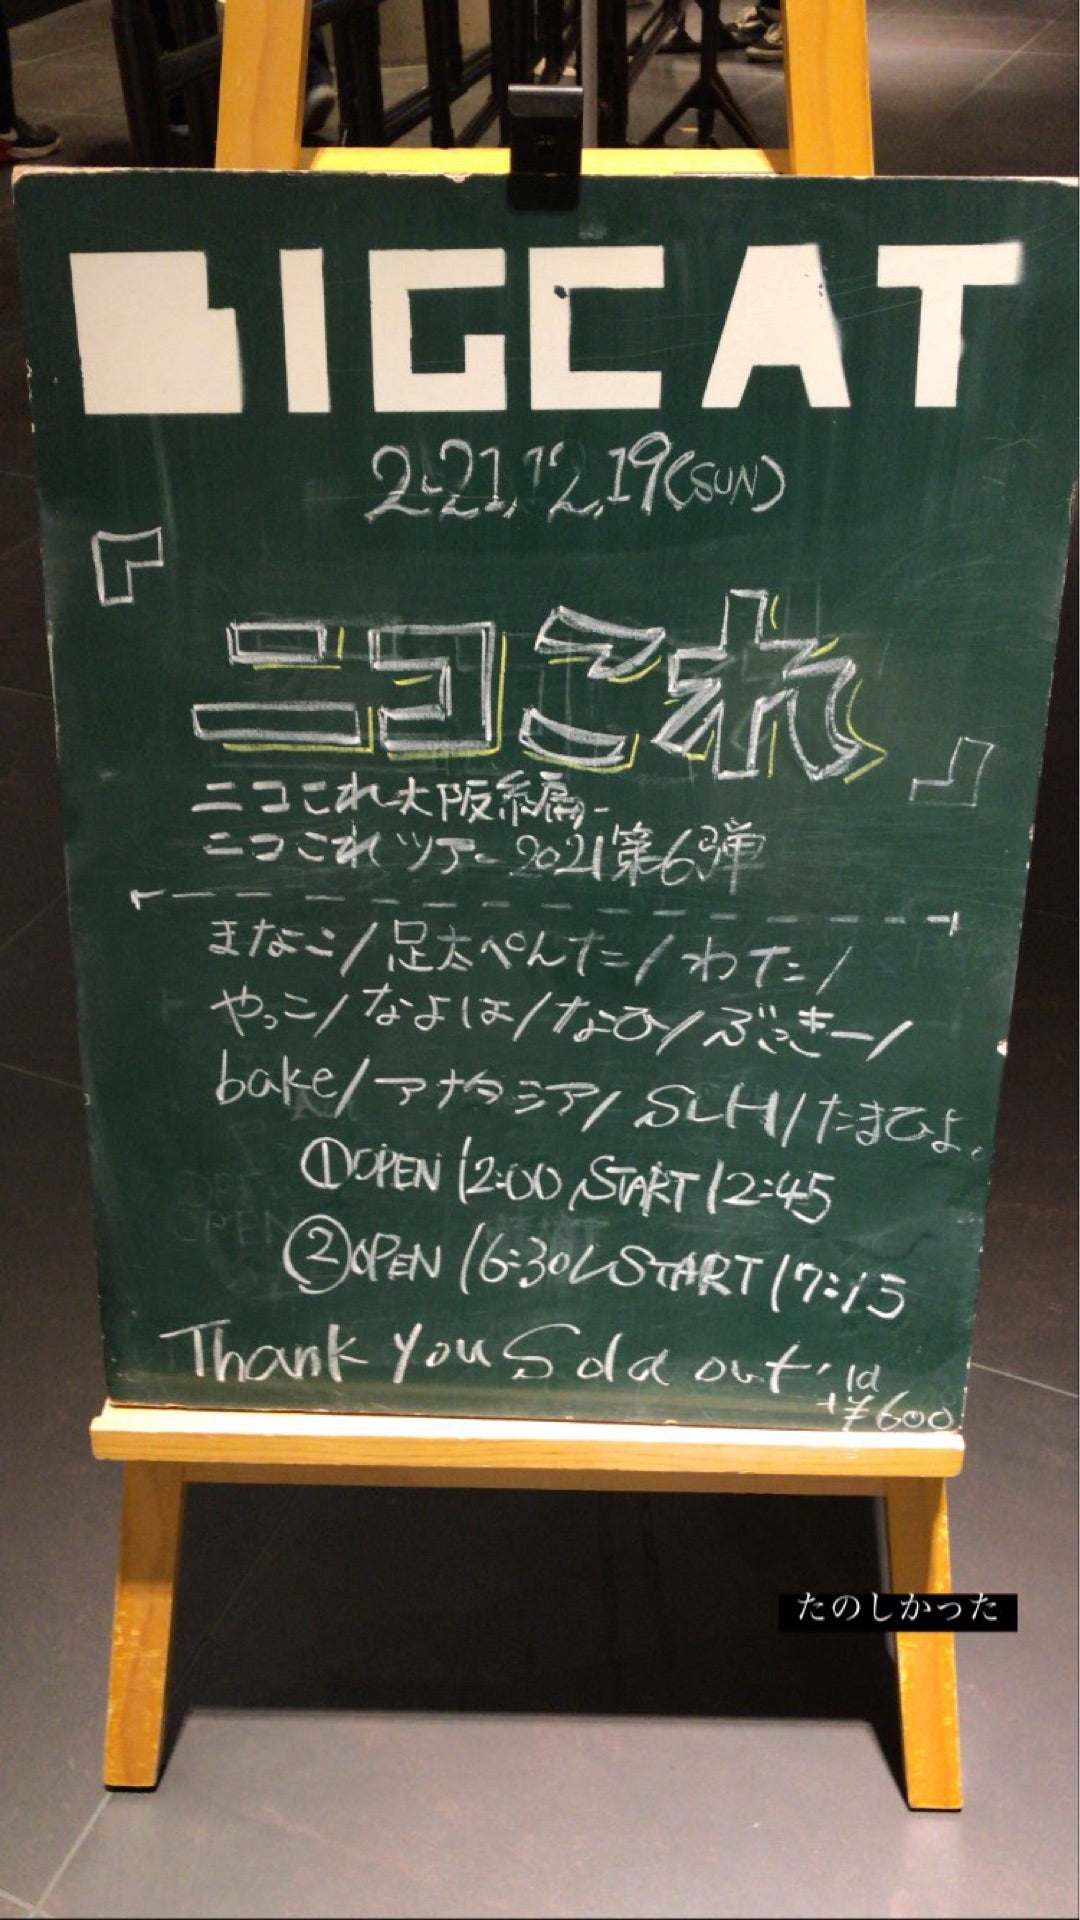 BIGCAT
2021.12.19(SUN)
『ニコこれ』
ニコこれ大阪編-
ニコこれツアー2021第6弾
まなこ/足太ぺんた/わた/
やっこ/なよは/なひ/ぶっきー/
bake/アナタシア/SLH/たまひよ。
①OPEN 12:00/START 12:45
②OPEN 16:30/START 17:15
Thank you Sold out!
1d
+¥600
たのしかった